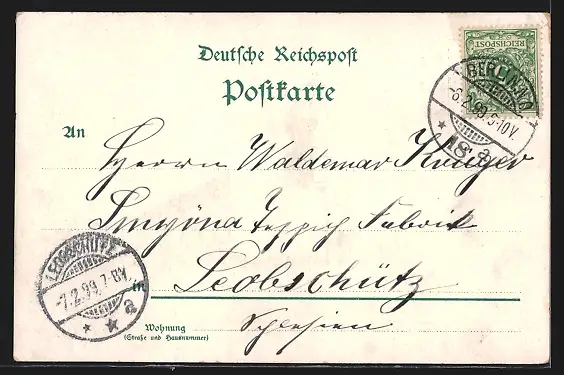 Deutsche Reichspost
Postkarte
REICHSPOST
BERLIN N.O.
-6.2.99.9-10V.
* 18 a
An
Herrn Waldemar Krueger
Smyrna Teppich Fabrik
in Leobschütz
Schlesien
LEOBSCHÜTZ
-7.2.99.7-8V.
* * a
Wohnung
(Straße und Hausnummer)